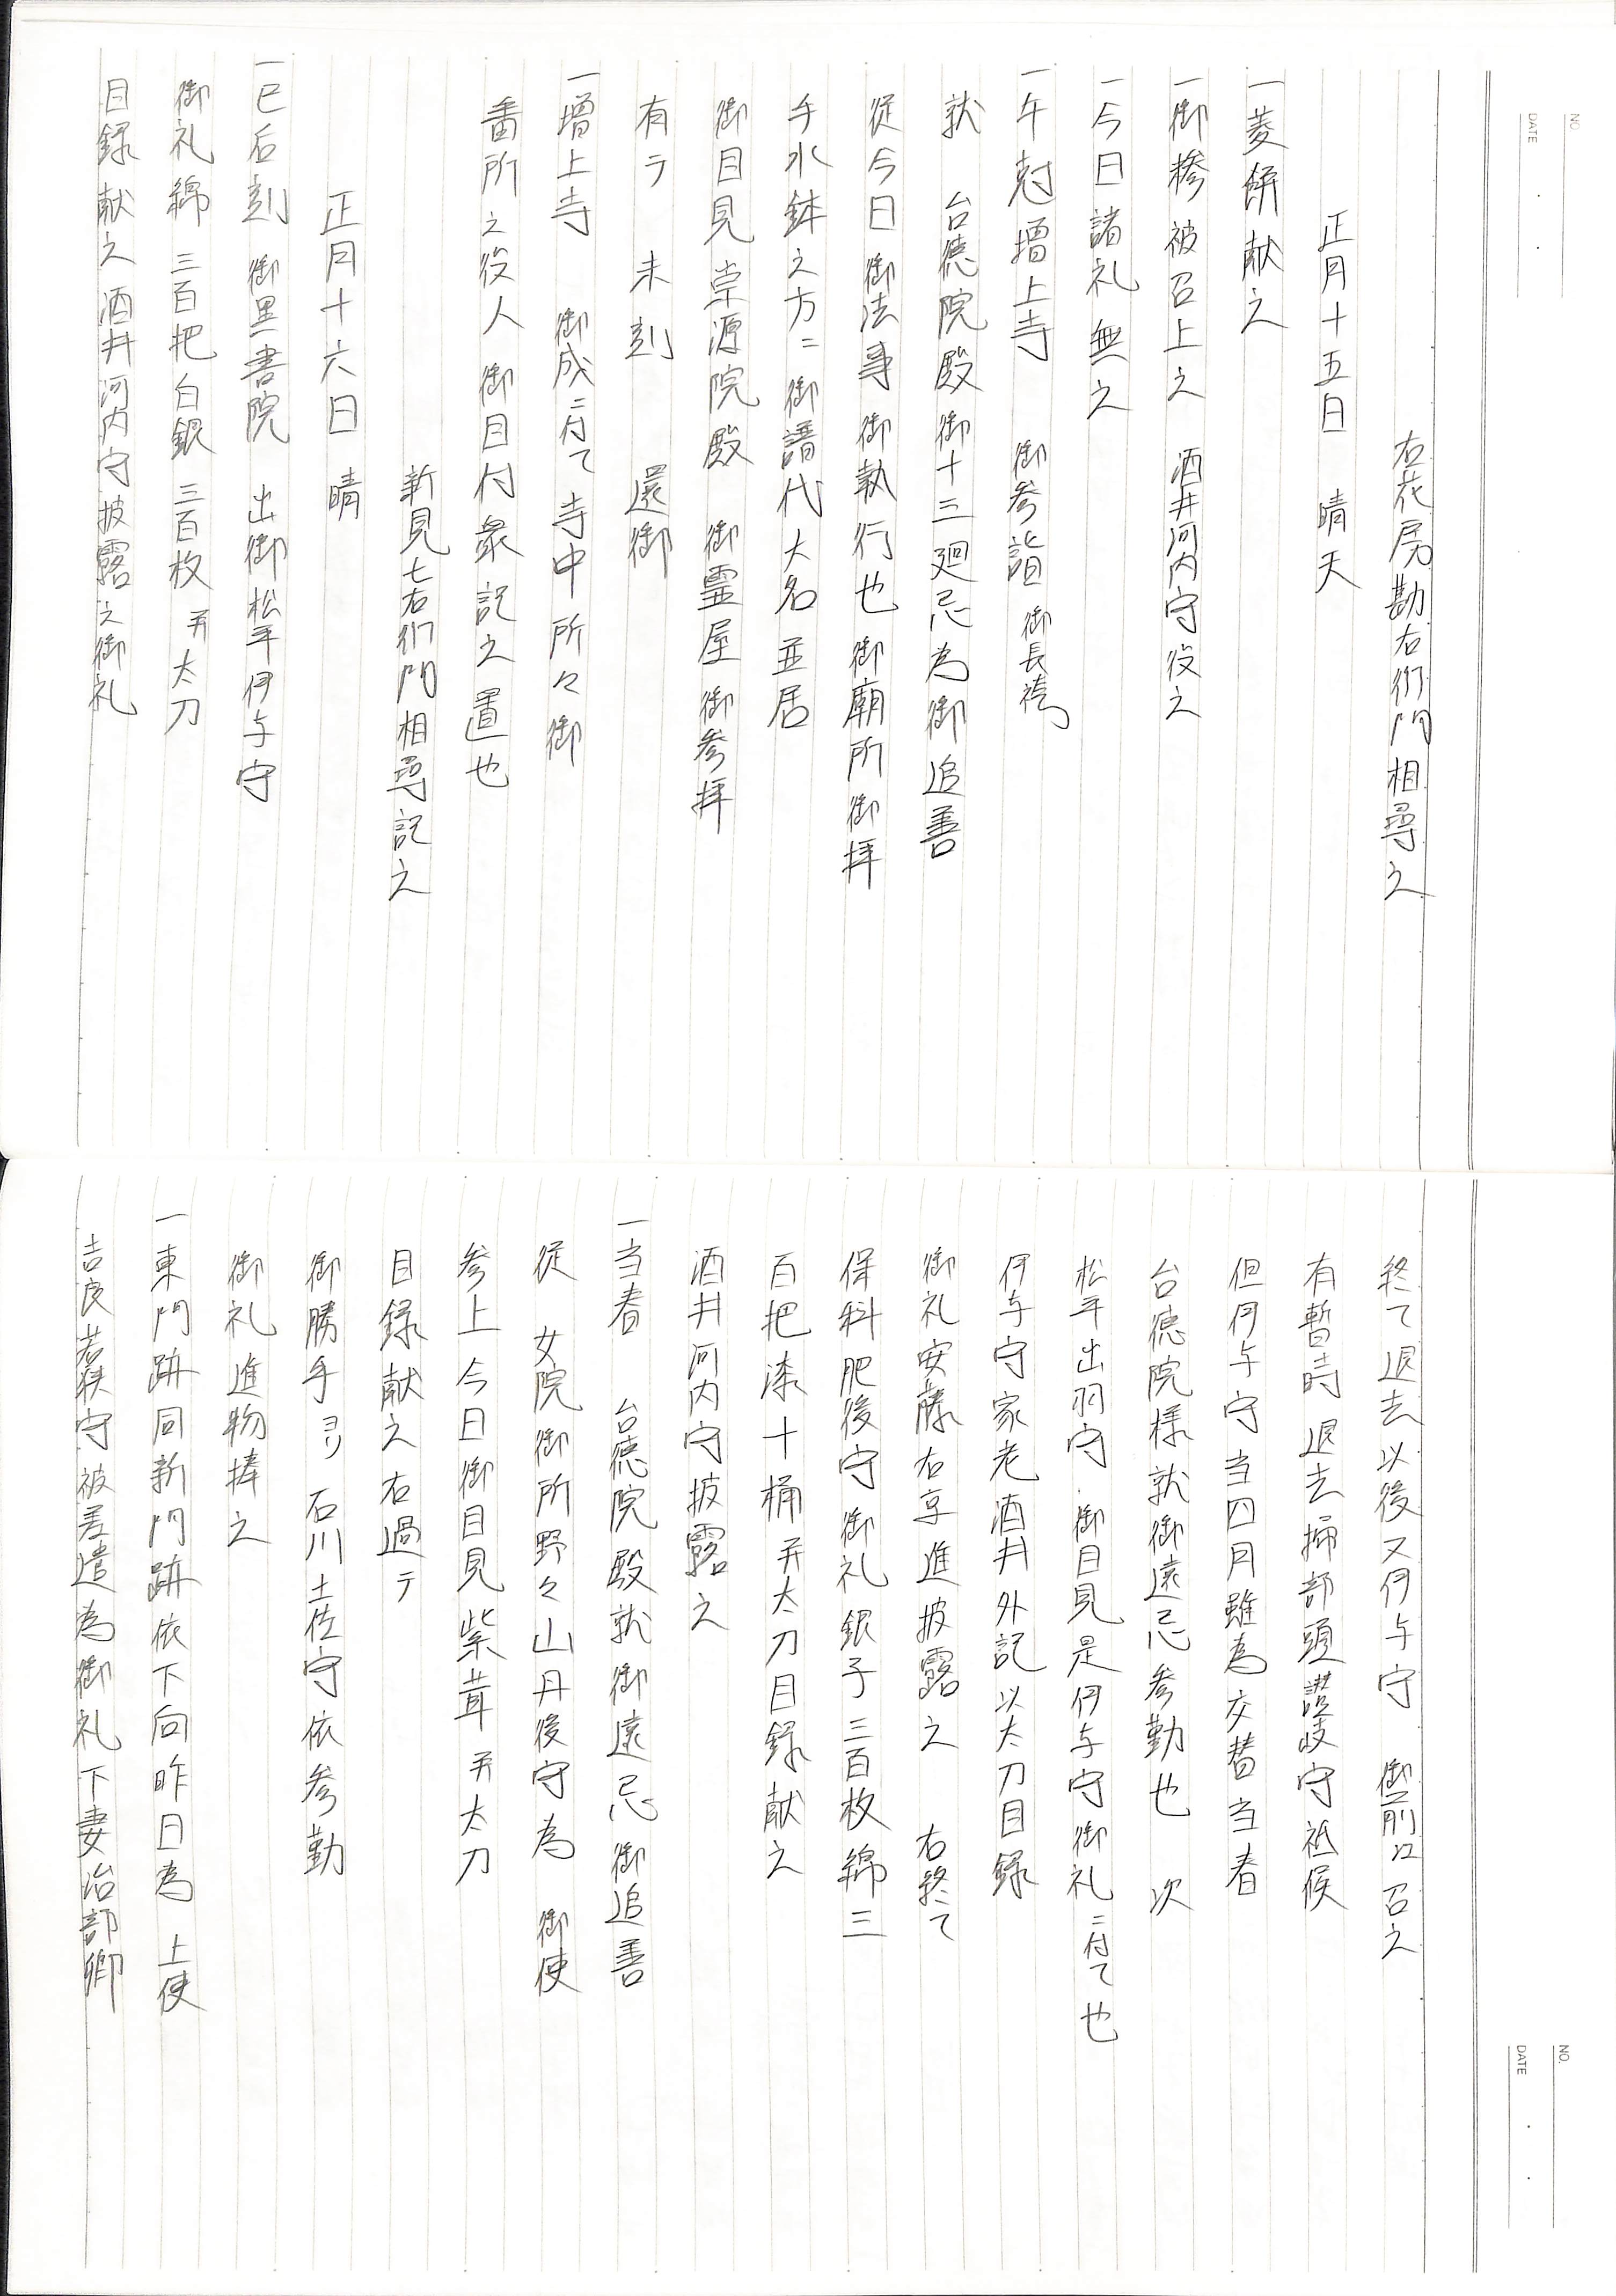 NO.
DATE
右花房勘右衛門相尋之
正月十五日 晴天
一菱餅献之
一御糝被召上之 酒井河内守役之
一今日諸礼無之
一午尅増上寺 御参詣 御長袴
就 台徳院殿御十三廻忌為御追善
従今日御法事御執行也御廟所御拝
手水鉢之方ニ御譜代大名並居
御目見崇源院殿 御霊屋御参拝
有テ 未刻 還御
一増上寺 御成ニ付て寺中所々御
番所之役人御目付衆記之置也
新見七右衛門相尋記之
正月十六日 晴
一巳后刻 御黒書院 出御松平伊与守
御礼綿三百把白銀三百枚并太刀
目録献之酒井河内守披露之御礼
NO.
DATE
終て退去以後又伊与守 御前江召之
有暫時退去掃部頭讃岐守祗候
但伊与守当四月雖為交替当春
台徳院様就御遠忌参勤也 次
松平出羽守 御目見是伊与守御礼ニ付て也
伊与守家老酒井外記以太刀目録
御礼安藤右京進披露之 右終て
保科肥後守御礼銀子三百枚綿三
百把漆十桶并太刀目録献之
酒井河内守披露之
一当春 台徳院殿就御遠忌御追善
従 女院御所野々山丹後守為 御使
参上今日御目見紫茸并太刀
目録献之右過テ
御勝手ヨリ石川土佐守依参勤
御礼進物捧之
一東門跡同新門跡依下向昨日為 上使
吉良若狭守被差遣為御礼下妻治部卿